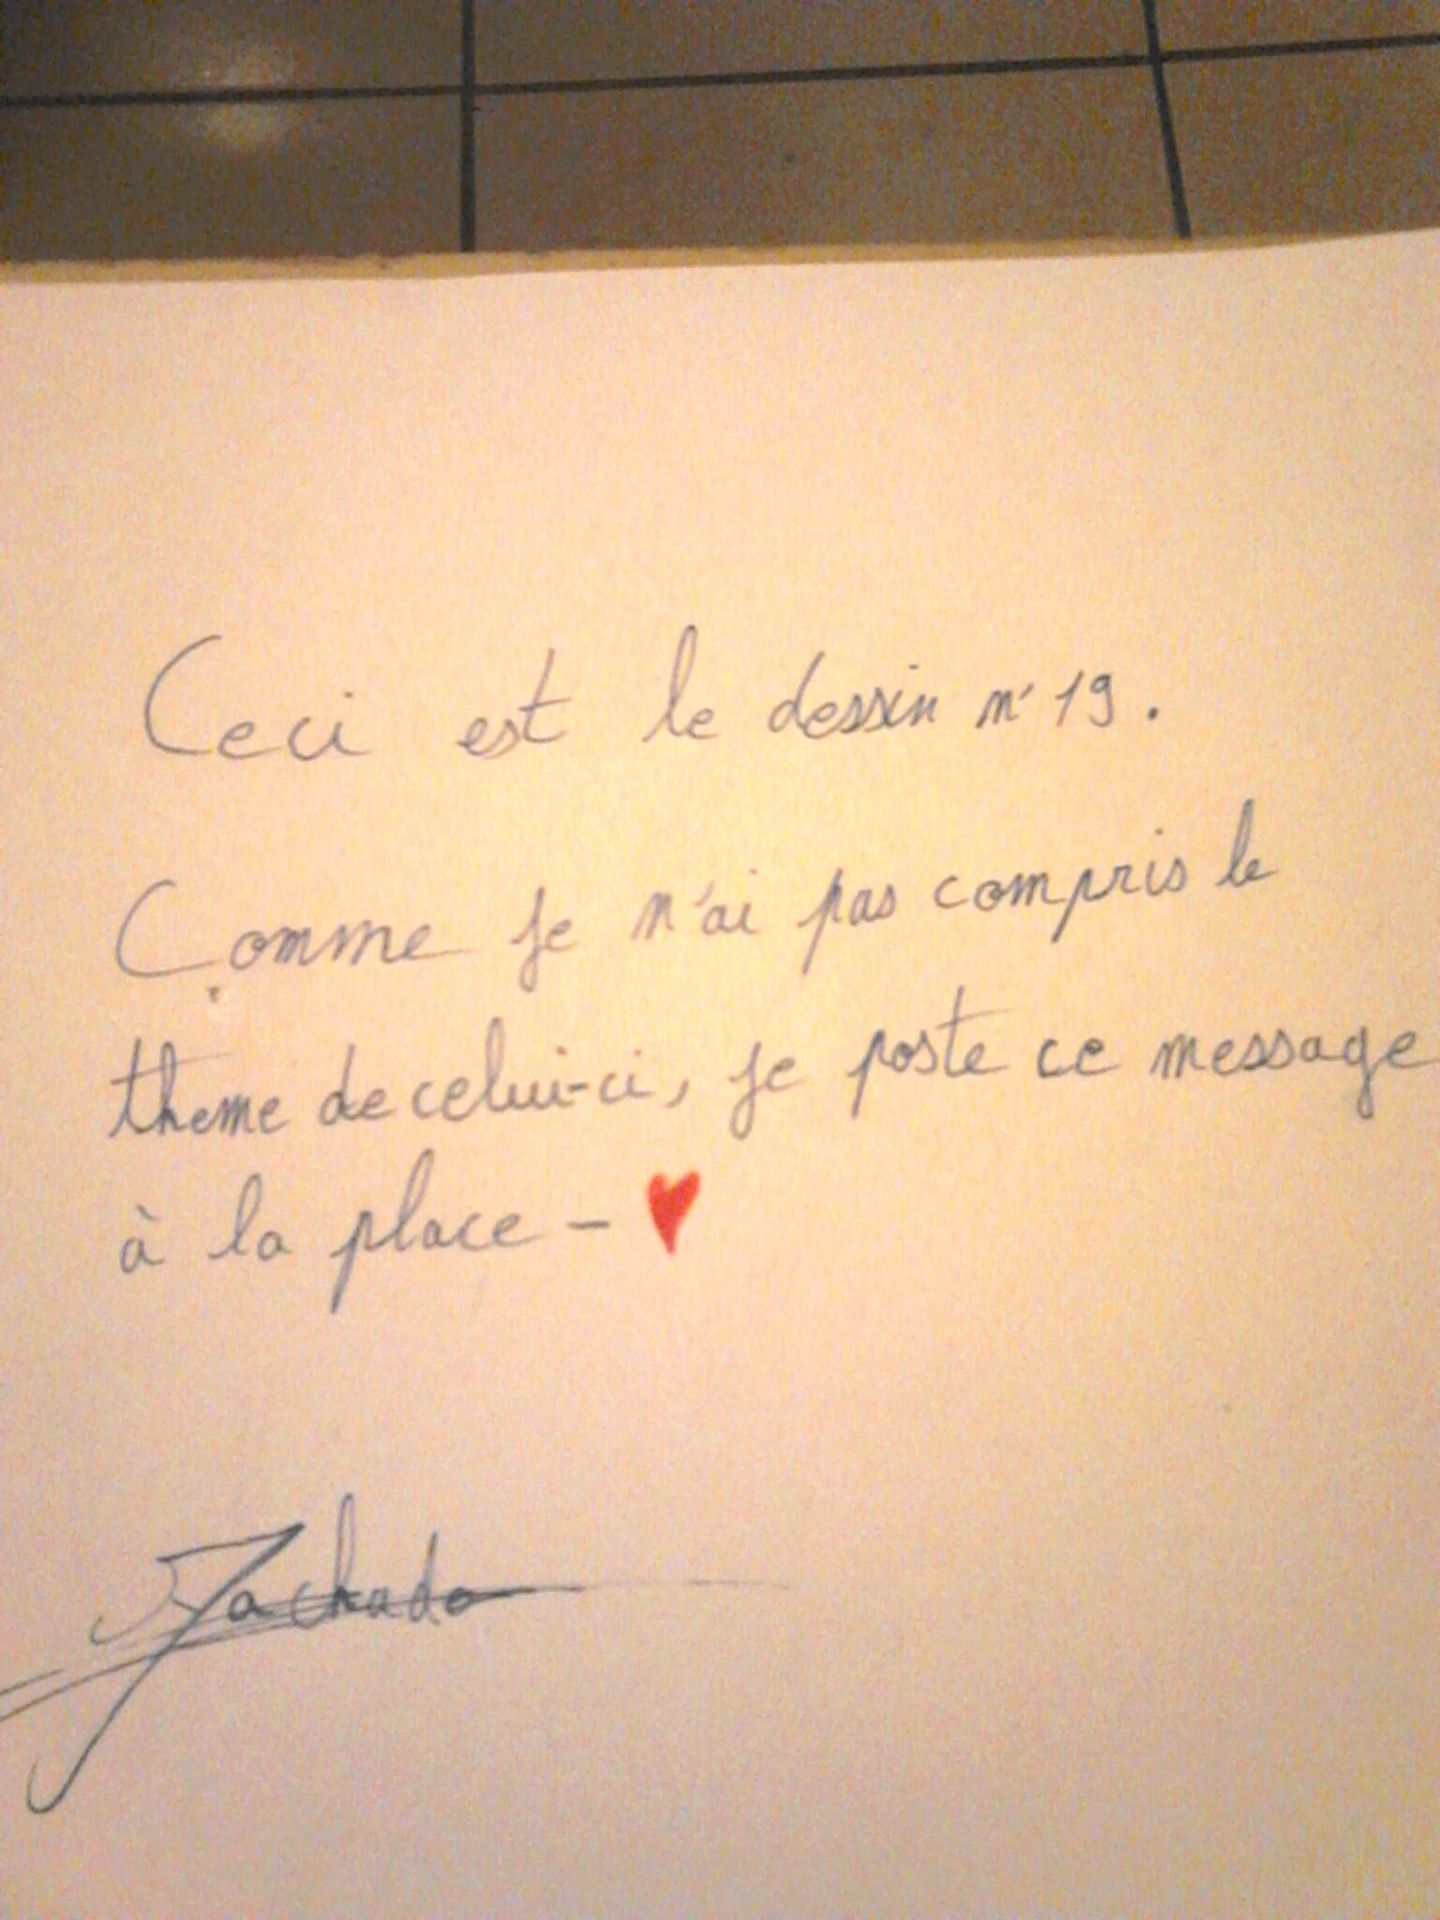 Ceci est le dessin n°19.
Comme je n'ai pas compris le
theme de celui-ci, je poste ce message
à la place - ♥
Jachado